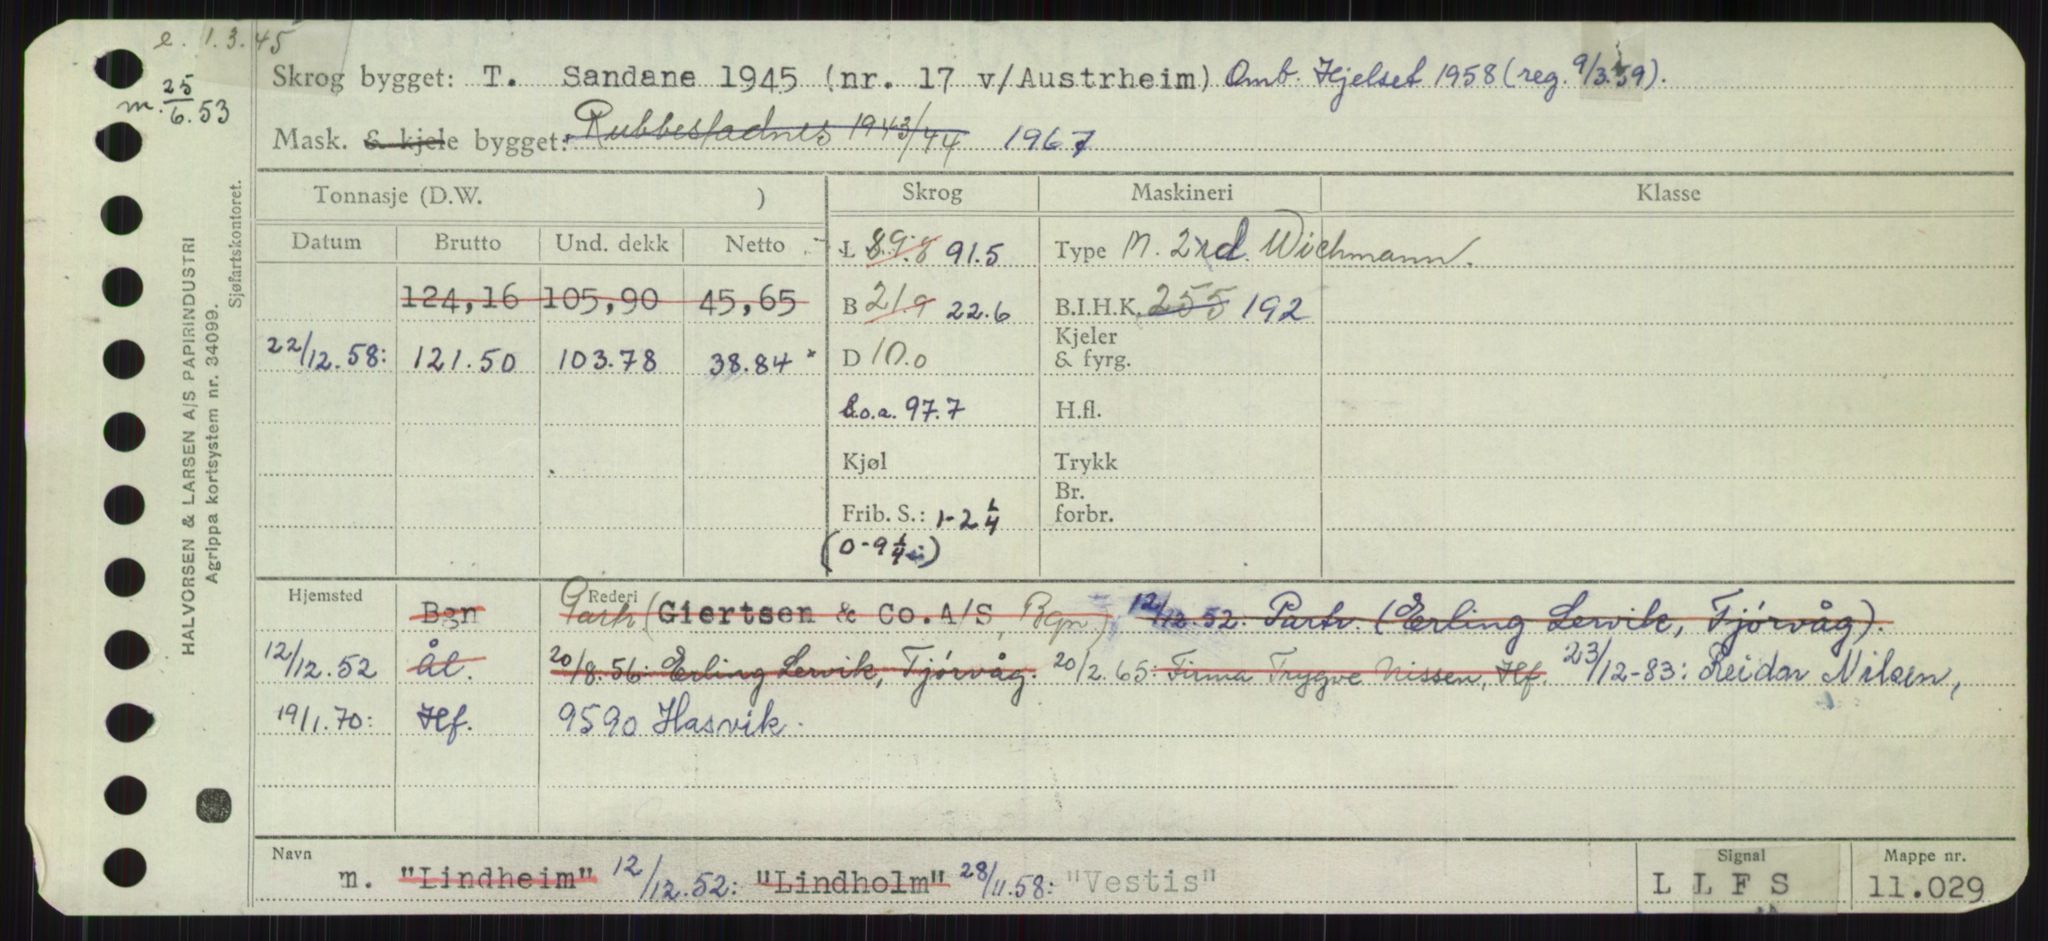 e. 1.3.45
m. 25/6.53
Skrog bygget: T. Sandane 1945 (nr. 17 v/Austrheim) Omb. Hjelset 1958 (reg. 9/3.59).
Mask. & kjele bygget: Rubbestadnes 1943/44 1967
Tonnasje (D.W. ) Skrog Maskineri Klasse
Datum Brutto Und. dekk Netto
L 89.8 91.5 Type M. 2 rd. Wichmann.
124,16 105,90 45,65 B 21.9 22.6 B.I.H.K. 255 192
22/12.58: 121.50 103.78 38.84 D 10.0 Kjeler & fyrg.
l.o.a. 97.7 H.fl.
Kjøl Trykk
Frib. S.: 1-2 1/4 Br. forbr.
(0-9 1/4)
Hjemsted Rederi
Bgn Partr. (Giertsen & Co. A/S, Bgn) 12/12.52: Partr. (Erling Lervik, Tjørvåg).
12/12.52 Ål. 20/8.56: Erling Lervik, Tjørvåg. 20/2.65: Firma Trygve Nissen, Hf. 23/12-83: Reidar Nilsen,
19/1.70: Hf. 9590 Hasvik.
Navn Signal Mappe nr.
m. "Lindheim" 12/12.52: "Lindholm" 28/11.58: "Vestis" L L F S 11.029
HALVORSEN & LARSEN A/S PAPIRINDUSTRI
Agrippa kortsystem nr. 34099.
Sjøfartskontoret.